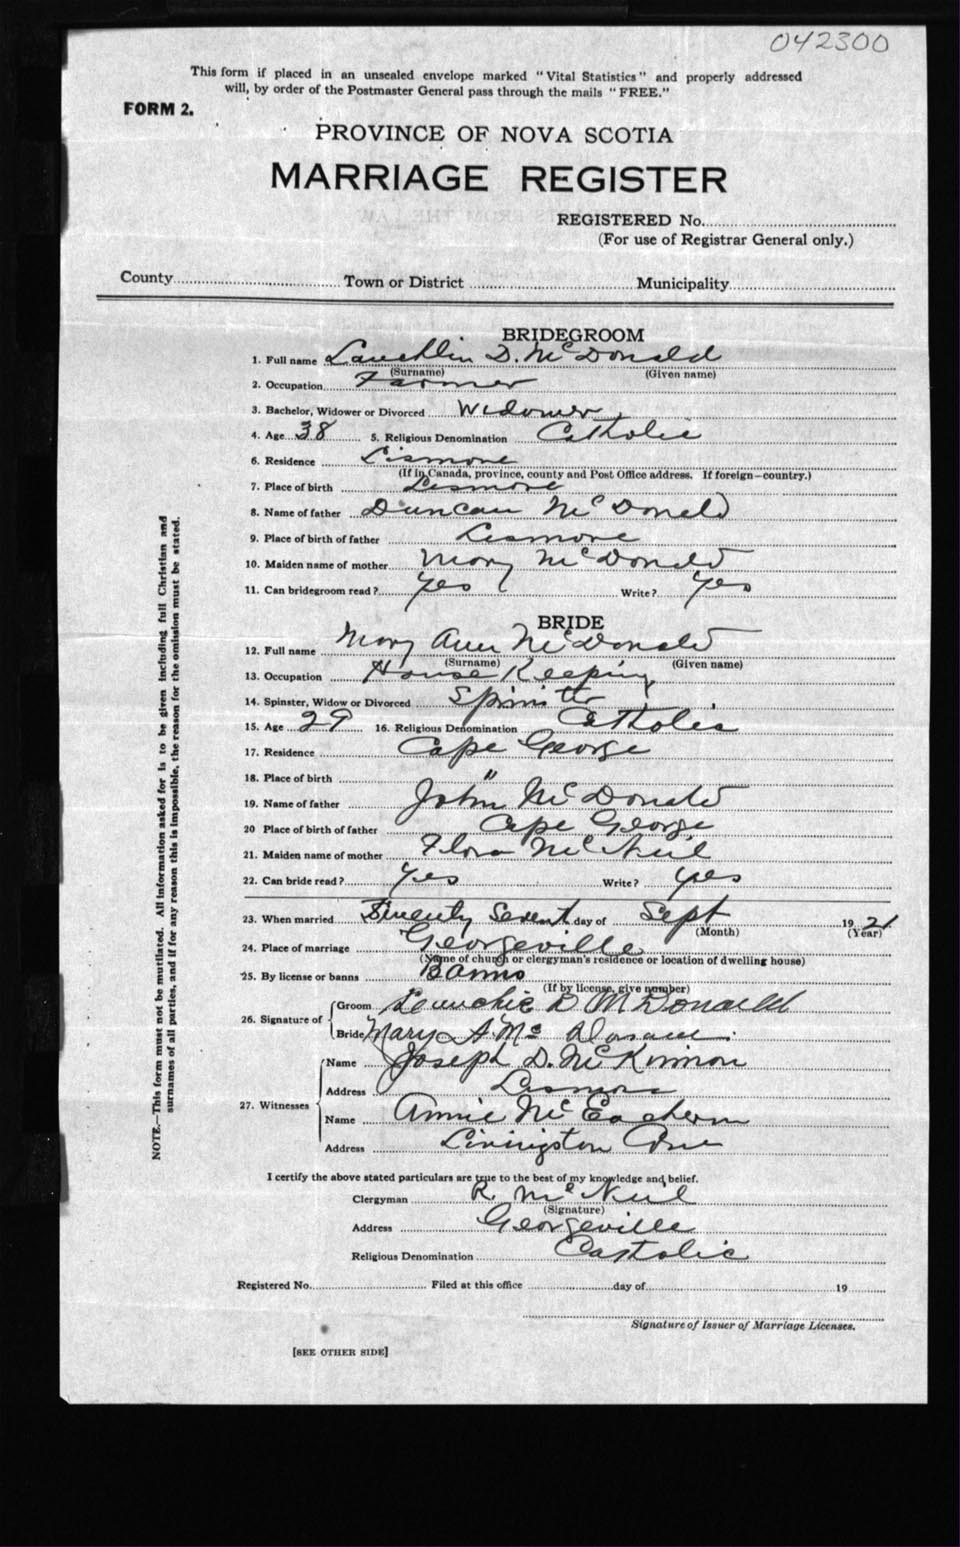 042300
This form if placed in an unsealed envelope marked "Vital Statistics" and properly addressed
will, by order of the Postmaster General pass through the mails "FREE."
FORM 2.
PROVINCE OF NOVA SCOTIA
MARRIAGE REGISTER
REGISTERED No.
(For use of Registrar General only.)
County Town or District Municipality
BRIDEGROOM
1. Full name Lauchlin D. McDonald
(Surname) (Given name)
2. Occupation Farmer
3. Bachelor, Widower or Divorced Widower
4. Age 38 5. Religious Denomination Catholic
6. Residence Lismore
(If in Canada, province, county and Post Office address. If foreign—country.)
7. Place of birth Lismore
8. Name of father Duncan McDonald
9. Place of birth of father Lismore
10. Maiden name of mother Mary McDonald
11. Can bridegroom read? Yes Write? Yes
BRIDE
12. Full name Mary Ann McDonald
(Surname) (Given name)
13. Occupation House Keeping
14. Spinster, Widow or Divorced
15. Age 29 16. Religious Denomination Catholic
17. Residence Cape George
18. Place of birth "
19. Name of father John McDonald
20 Place of birth of father Cape George
21. Maiden name of mother Flora McNeil
22. Can bride read? Yes Write? yes
23. When married Twenty Sevent day of Sept 1921
(Month) (Year)
24. Place of marriage Georgeville
(Name of church or clergyman's residence or location of dwelling house)
25. By license or banns Banns
(If by license, give number)
26. Signature of Groom Launchie D McDonald
Bride Mary A. Mc
27. Witnesses Name Joseph D. McKinnon
Address Lismore
Name Annie McEachern
Address Livingston
I certify the above stated particulars are true to the best of my knowledge and belief.
Clergyman R. McNeil
(Signature)
Address Georgeville
Religious Denomination Catholic
Registered No. Filed at this office day of 19
Signature of Issuer of Marriage Licenses.
[SEE OTHER SIDE]
NOTE.—This form must not be mutilated. All information asked for is to be given including full Christian and
surnames of all parties, and if for any reason this is impossible, the reason for the omission must be stated.